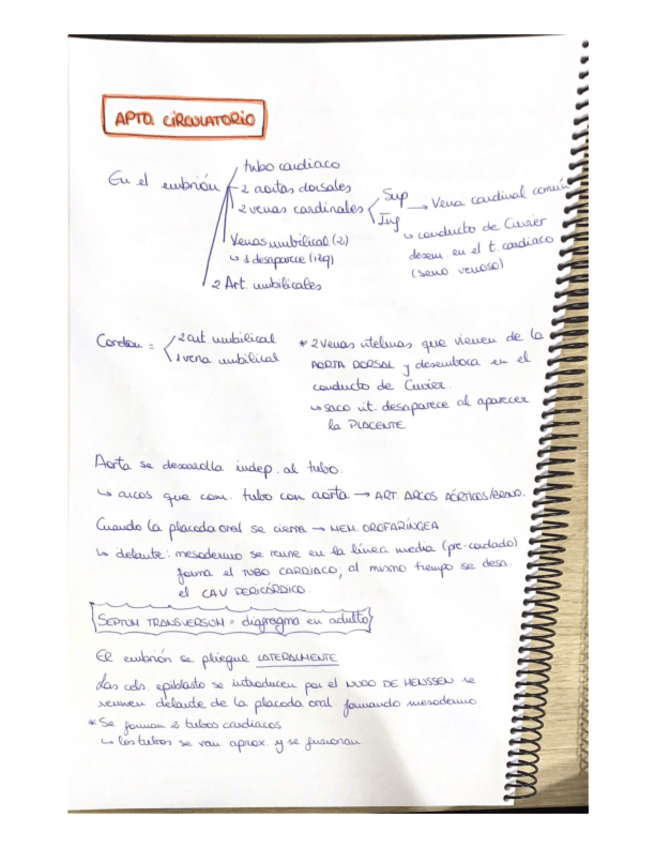 APTO. CIRCULATORIO
En el embrión
tubo cardiaco
2 aortas dorsales
2 venas cardinales
Sup
Inf
→ Vena cardinal común
↳ conducto de Cuvier
desem. en el t. cardiaco
(seno venoso)
Venas umbilical (2)
↳ 1 desaparece (izq)
2 Art. umbilicales
Cordon =
2 art umbilical
1 vena umbilical
* 2 venas vitelinas que vienen de la
AORTA DORSAL y desemboca en el
conducto de Cuvier.
↳ saco vit. desaparece al aparecer
la PLACENTE
Aorta se desarolla indep. al tubo.
↳ arcos que com. tubo con aorta → ART. ARCOS AÓRTICOS/BRANQ.
Cuando la placoda oral se cierra → MEM. OROFARÍNGEA
↳ delante: mesodermo se reune en la línea media (pre-cordado)
forma el TUBO CARDIACO; al mismo tiempo se desa.
el CAV PERICÁRDICO.
SEPTUM TRANSVERSUM = diafragma en adulto
El embrión se pliegue LATERALMENTE
Las cels. epiblasto se introducen por el NUDO DE HENSSEN se
reunen delante de la placoda oral formando mesodermo.
* Se forman 2 tubos cardiacos
↳ los tubos se van aprox. y se fusionan